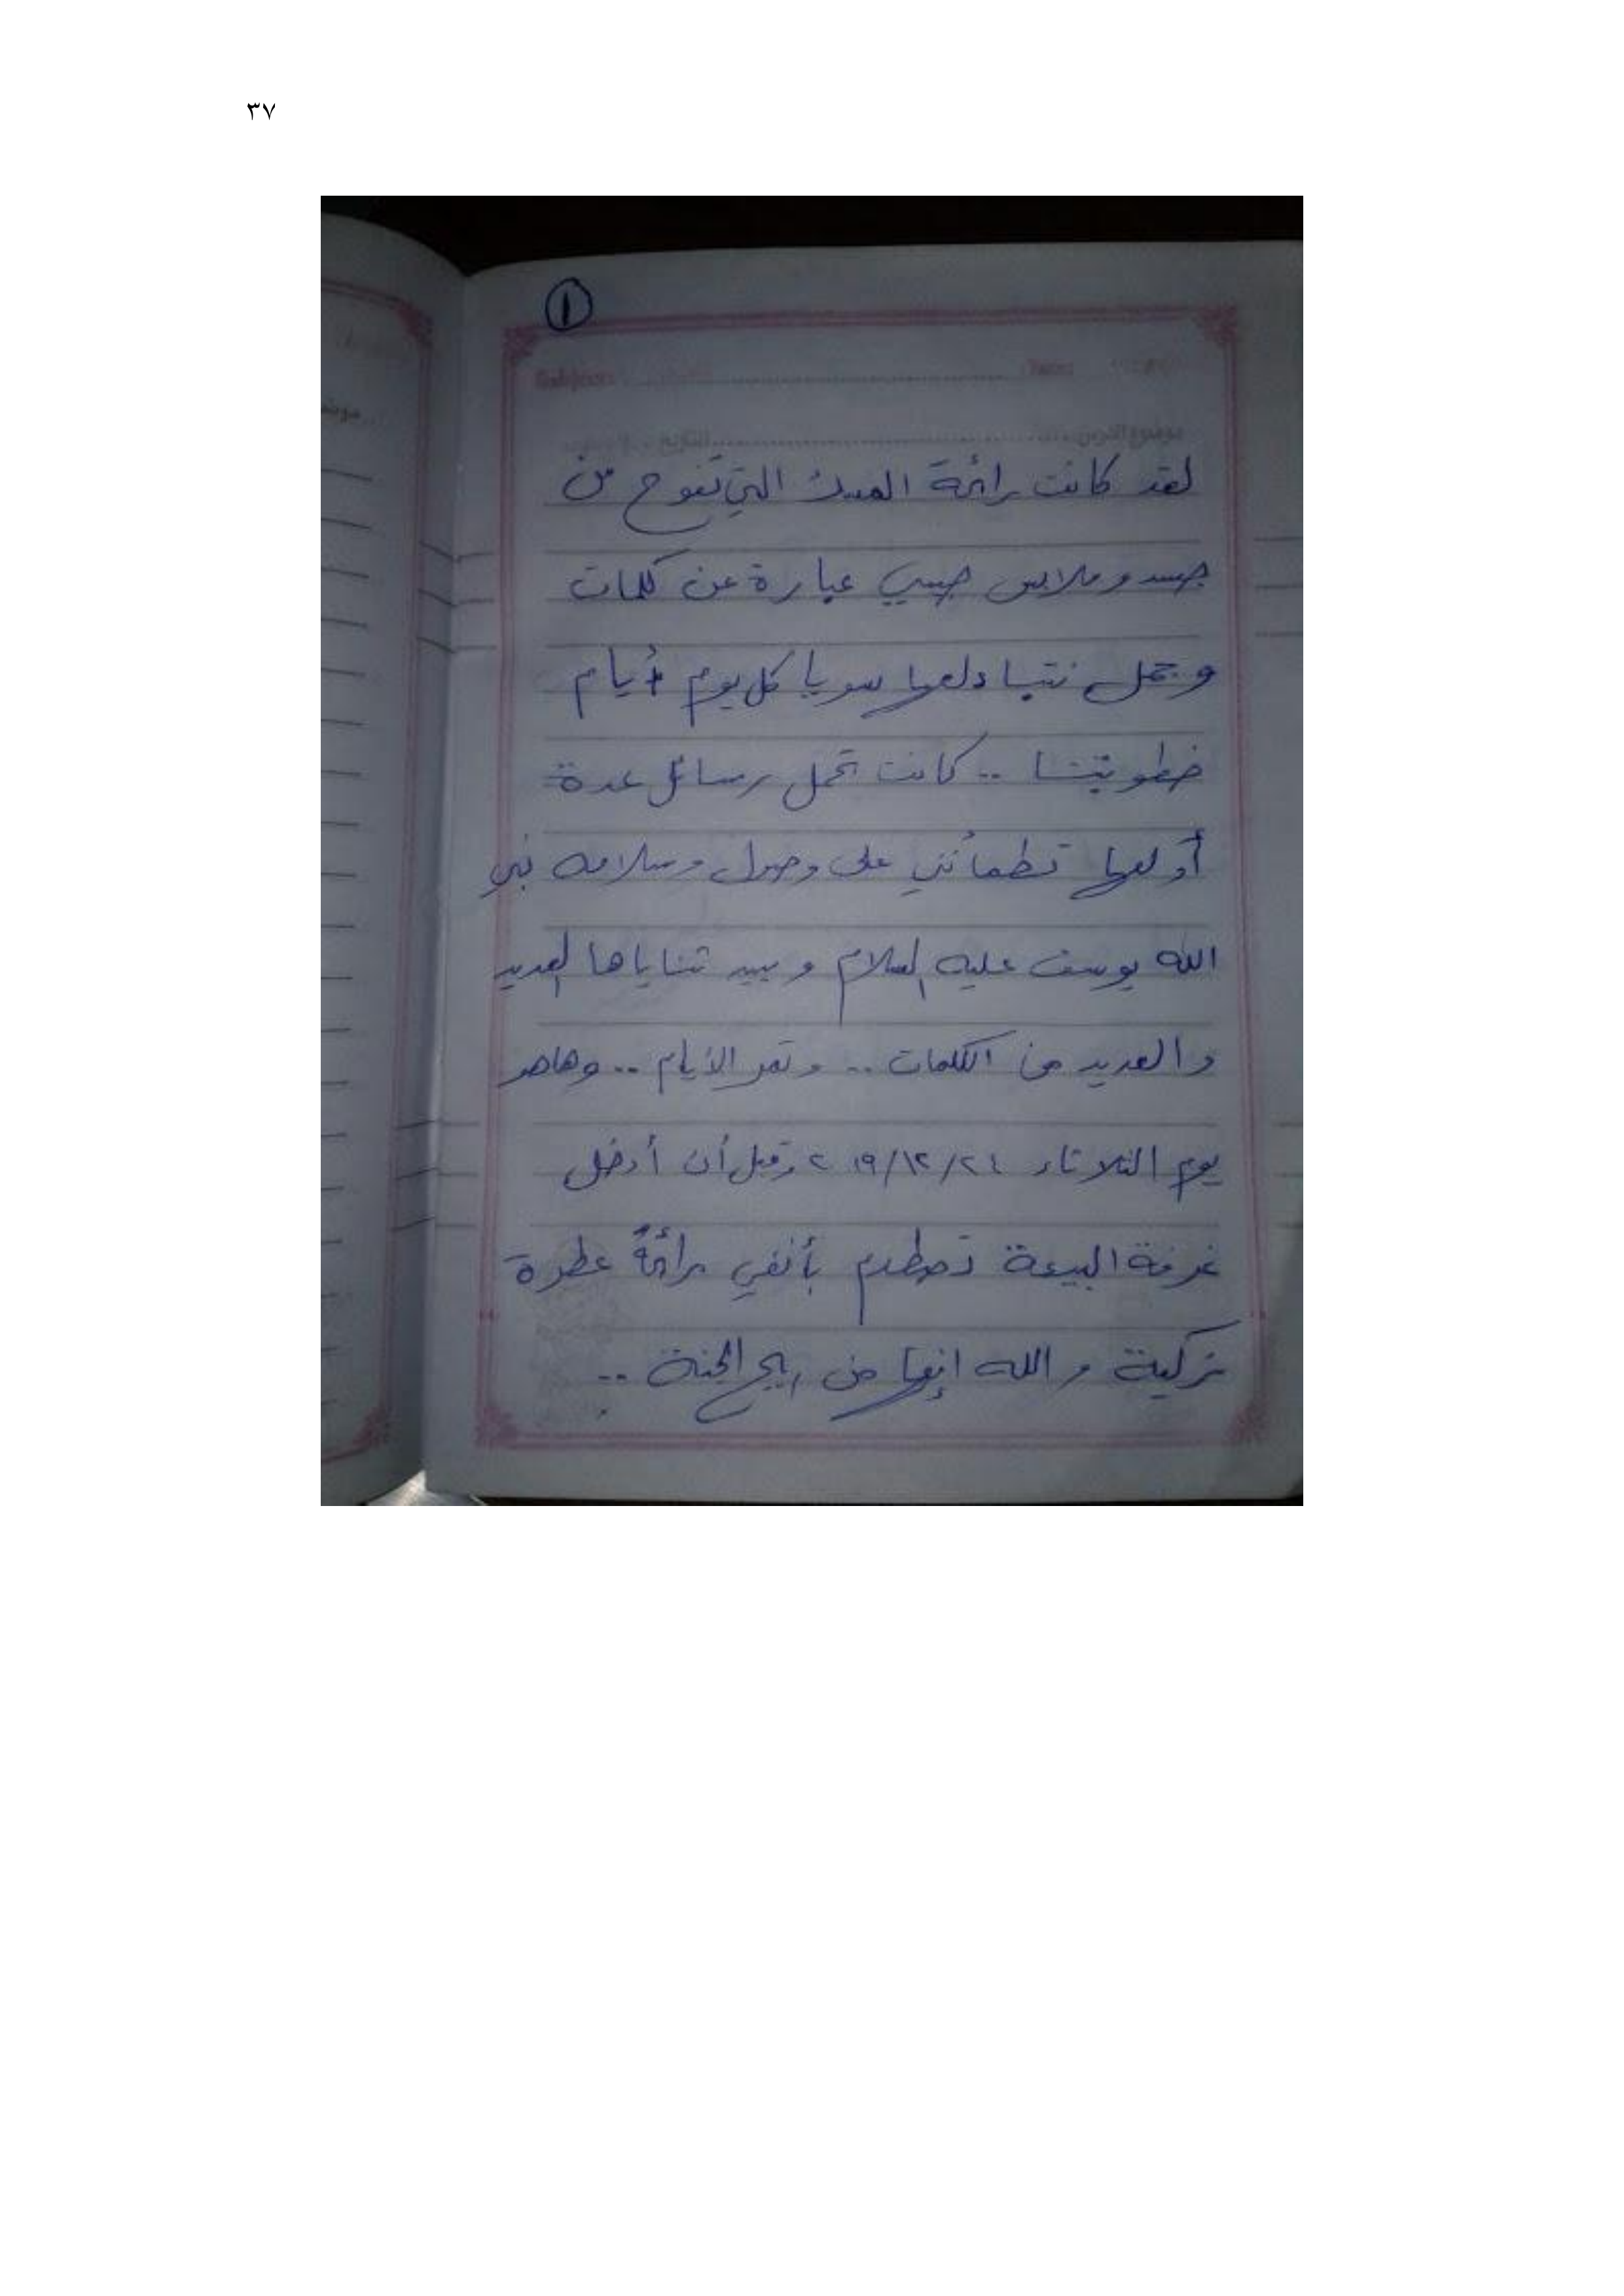 ٣٧
١
Subject
موضوع الدرس التاريخ
لقد كانت رائحة المسك التي تفوح من
جسد وملابس حبيبي عبارة عن كلمات
وجمل نتبادلها سويا كل يوم أيام
خطوبتنا .. كانت تحمل رسائل عدة
أولها تطمأنني على وصول وسلامه نبي
الله يوسف عليه السلام وبين ثناياها العديد
والعديد من الكلمات .. وتمر الأيام .. وهاهو
يوم الثلاثاء ٢٠١٩/١٢/٢٤ وقبل أن أدخل
غرفة البيعة تصطدم بأنفي رائحةً عطرة
زكية والله إنها من ريح الجنة ..